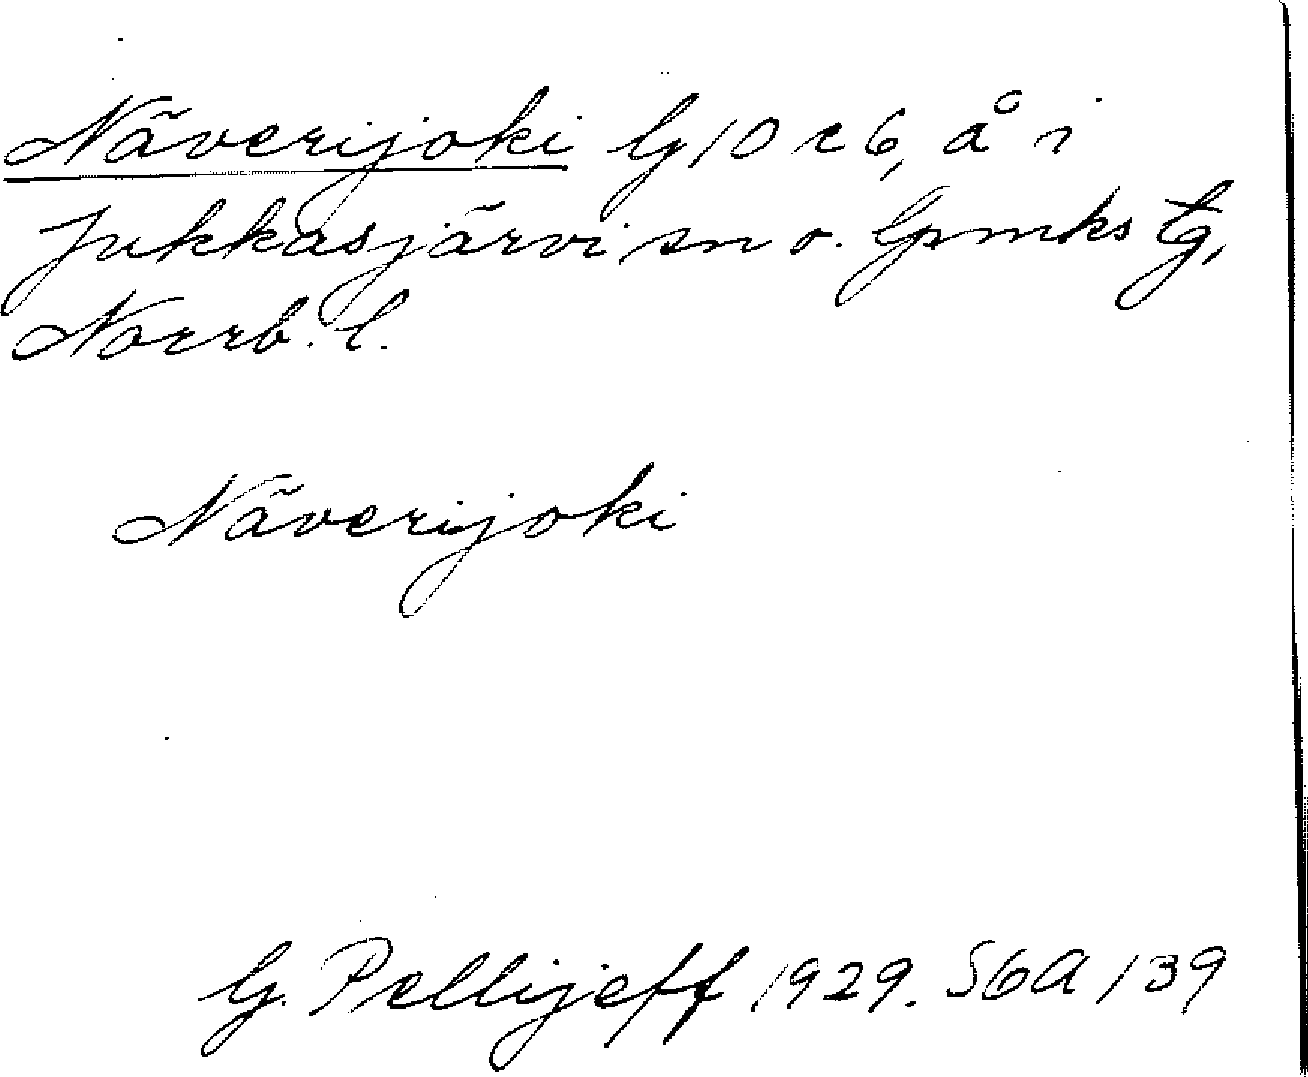 Näverijoki G 10 c 6, å i
Jukkasjärvi sn o. Gmks tg,
Norrb. l.
Näverijoki
G. Pellijeff 1929. S6A 139